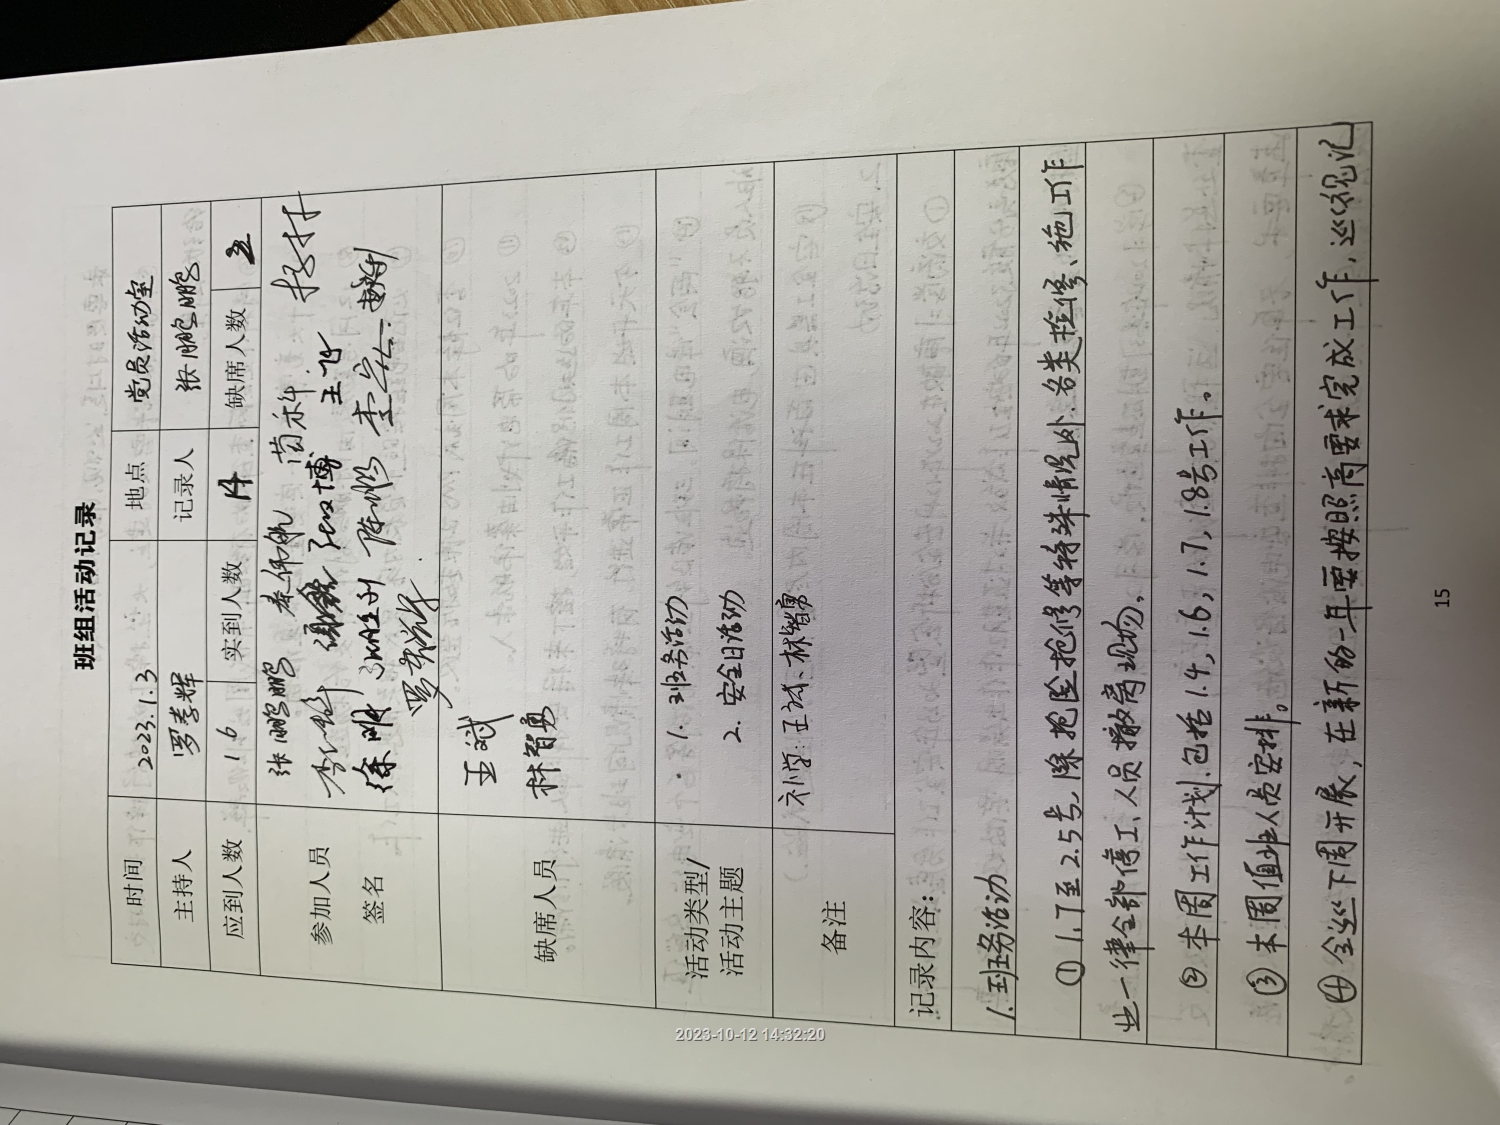 班组活动记录
时间 2023.1.3 地点 党员活动室
主持人 罗孝辉 记录人 张鹏鹏
应到人数 16 实到人数 14 缺席人数 2
参加人员
签名
张鹏鹏 秦仰帆 苗科
张博 王飞
徐明 陈彬 李宏
缺席人员
王斌
林智勇
活动类型/
活动主题
1. 班务活动
2. 安全日活动
备注 补学: 王斌、林智勇
记录内容:
1. 班务活动
① 1.17至2.5号, 除抢险抢修等特殊情况外, 各类检修、施工作
业一律全部停工、人员撤离现场。
② 本周工作计划. 包括1.4, 1.6, 1.7, 1.8号工作。
③ 本周值班人员安排。
④ 全巡下周开展, 在新的一年要按照高要求完成工作, 巡视记
15
2023-10-12 14:32:20